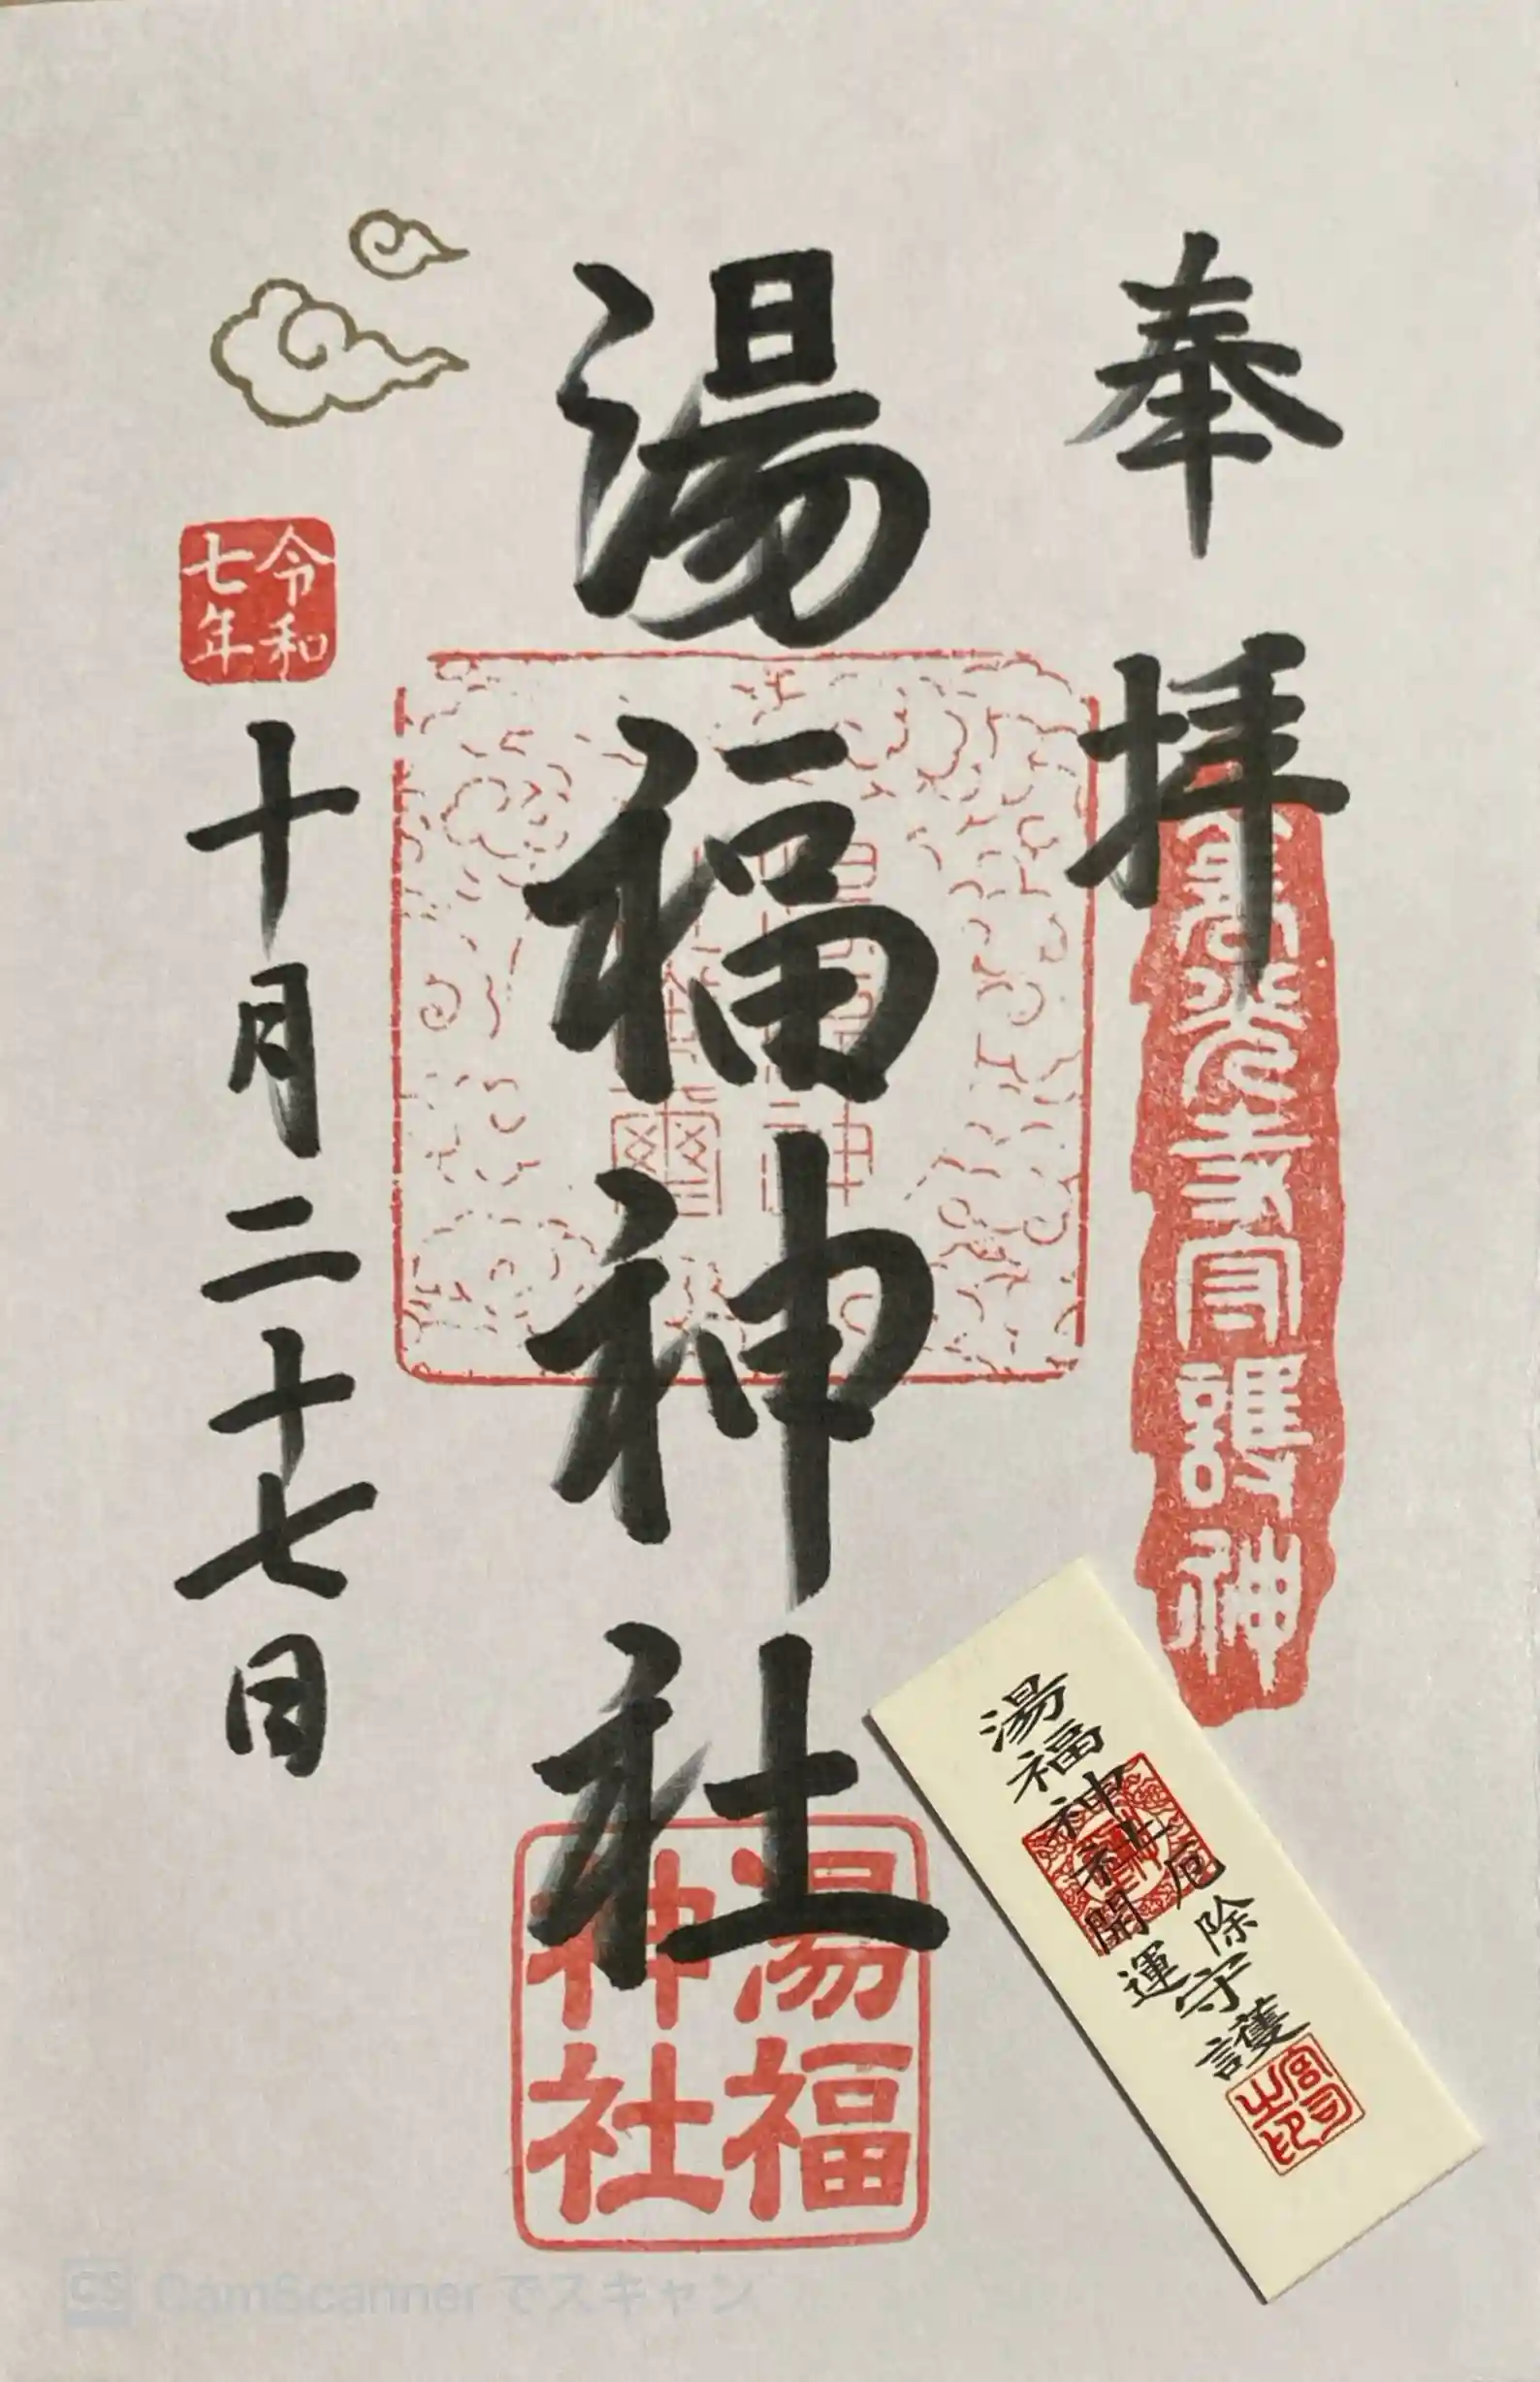 奉拝
善光寺同護神
湯福神社
湯福
神社
令和
七年
十月二十七日
湯福神社開運
厄除守護
宮司
之印
CS CamScanner でスキャン